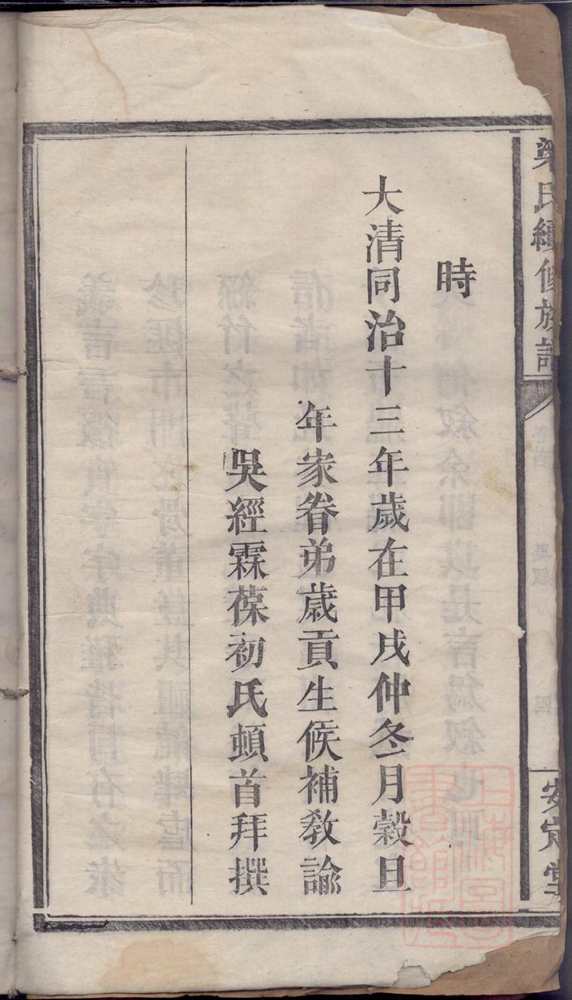 梁氏續修族譜
安定堂
時
大清同治十三年歲在甲戌仲冬月穀旦
年家眷弟歲貢生候補教諭
吳經霖葆初氏頓首拜撰